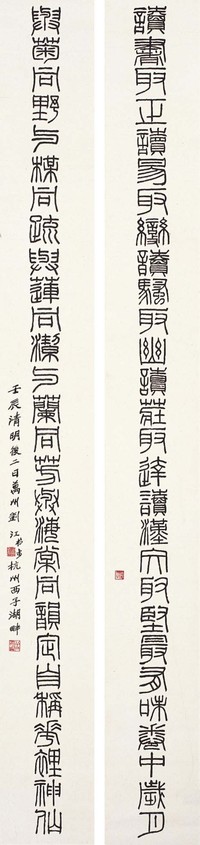 讀書取正讀易取變讀騷取幽讀莊取達讀漢文取堅最有味卷中歲月
與菊同野與梅同疏與蓮同潔與蘭同芳與海棠同韻定自稱花裡神仙
壬辰清明後二日萬州劉江書於杭州西子湖畔